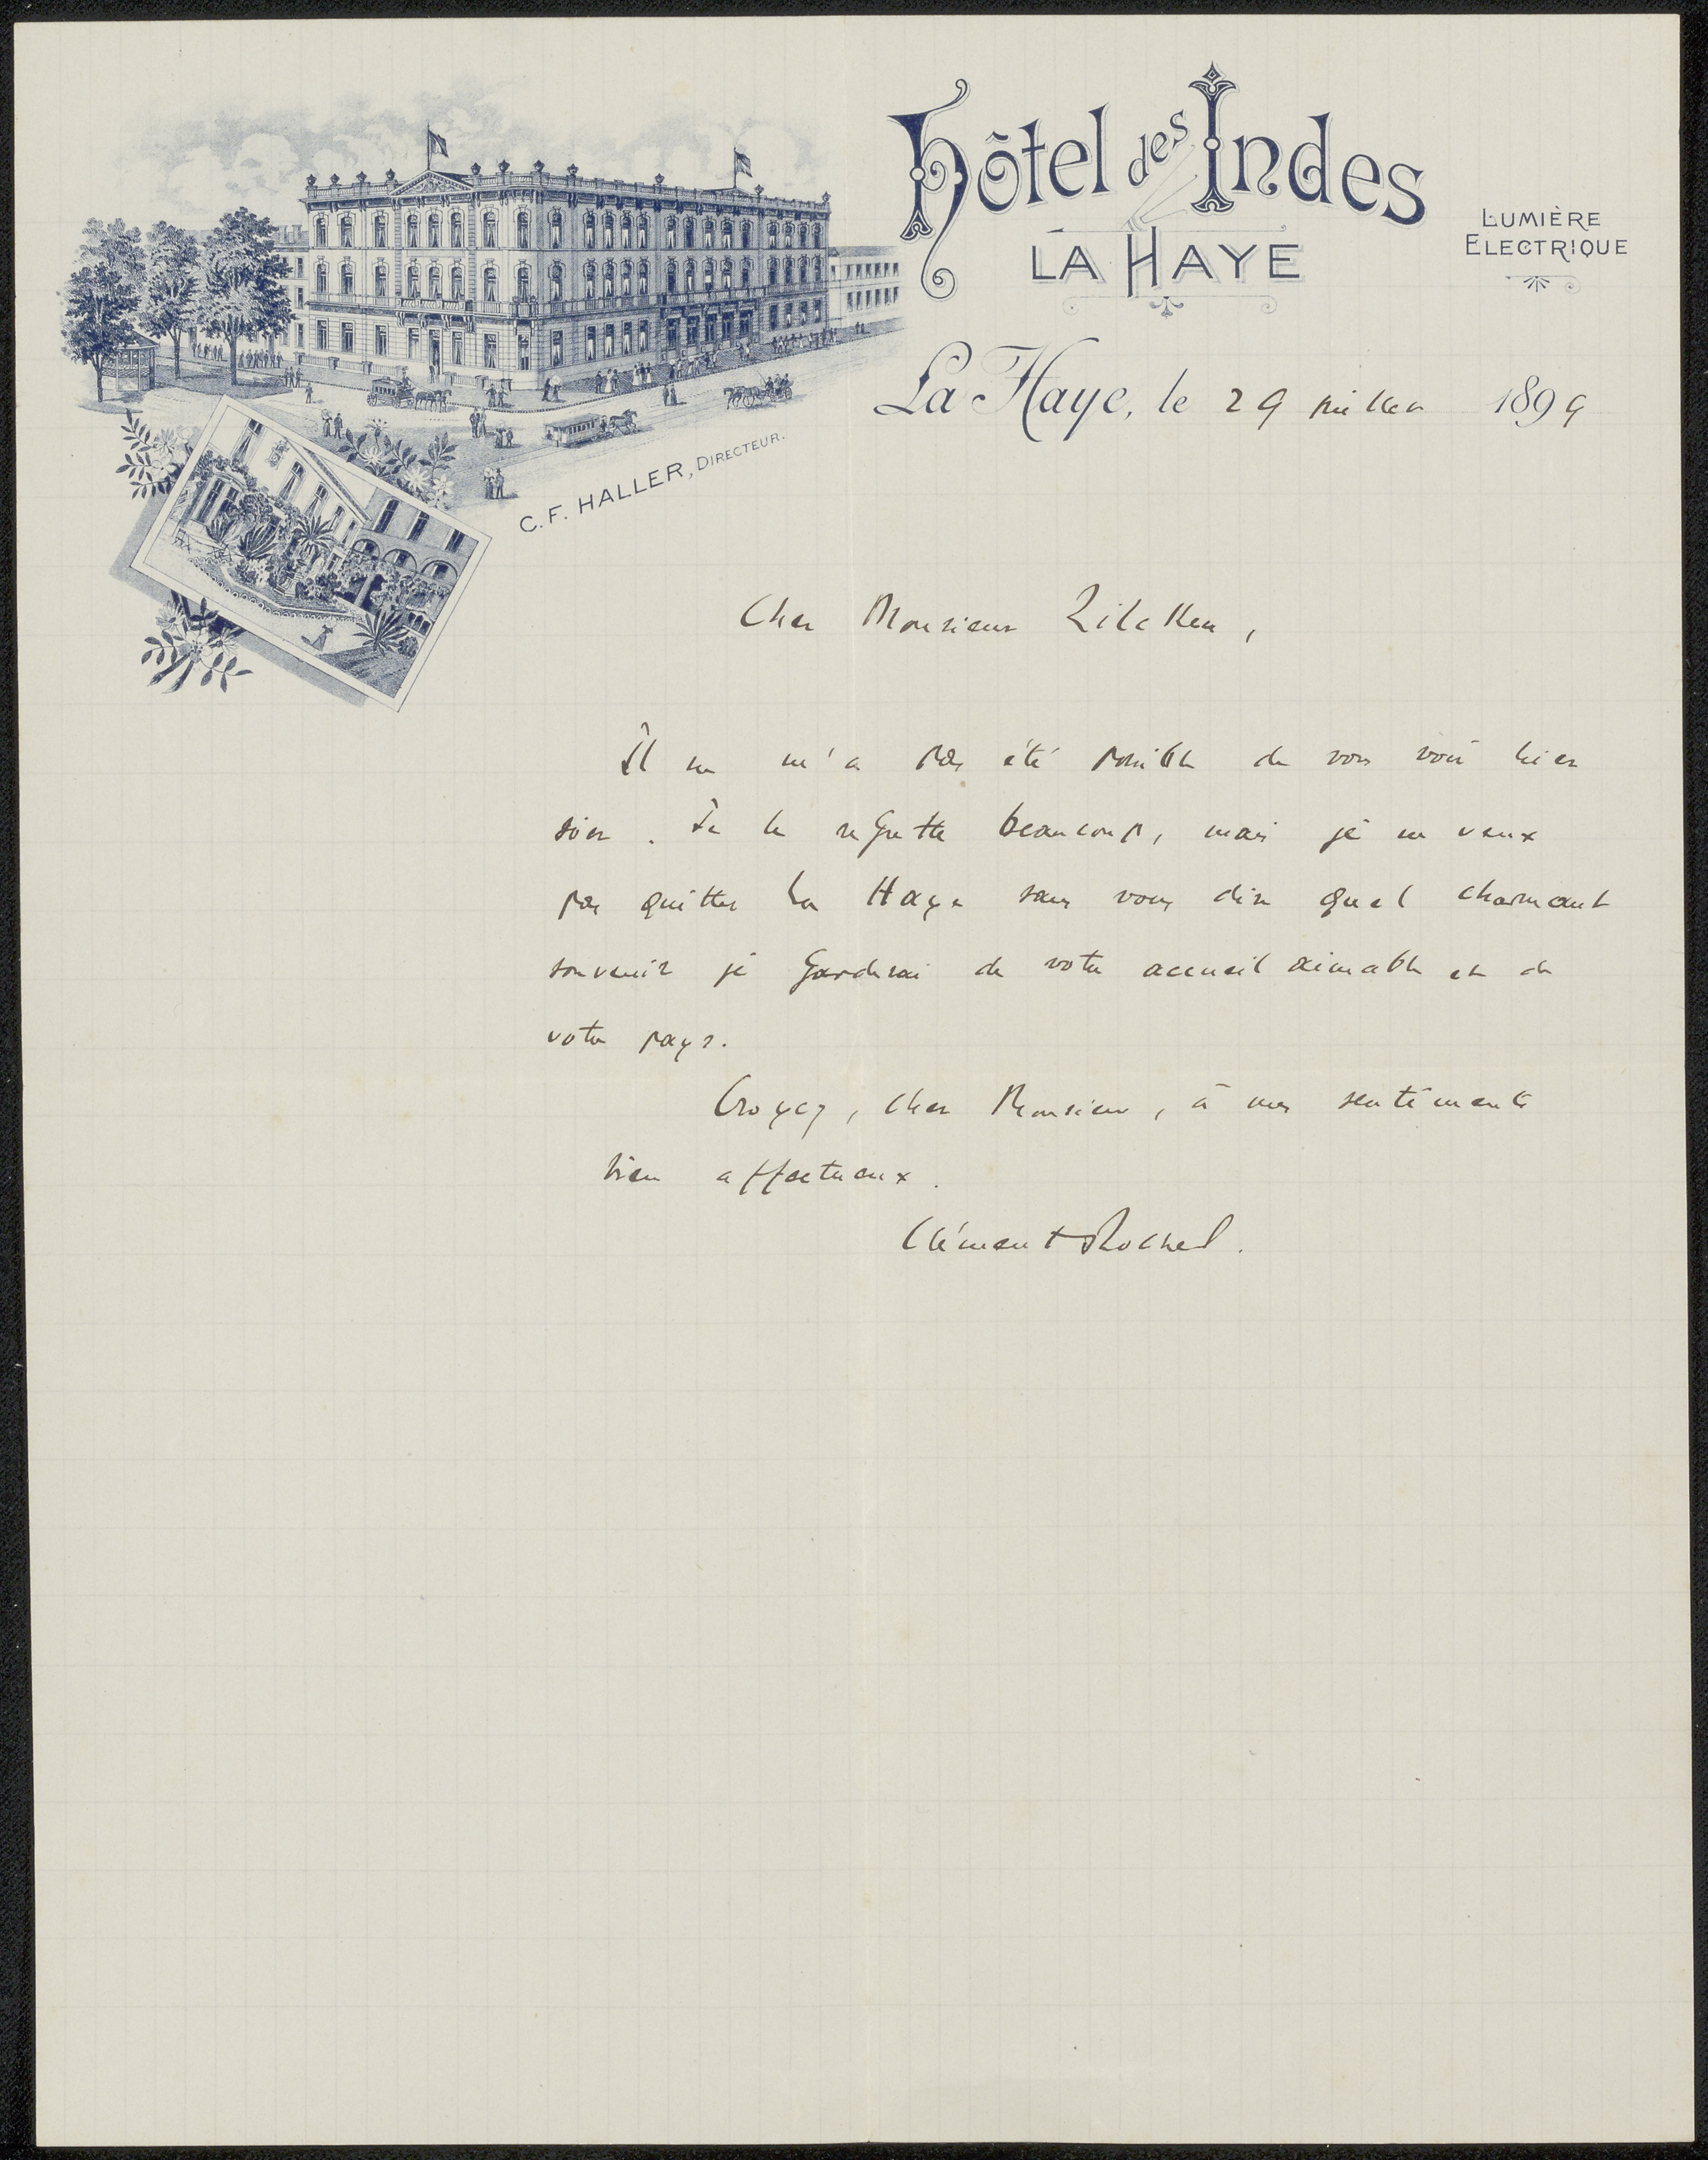 Hôtel des Indes
LA HAYE
LUMIÈRE
ELECTRIQUE
La Haye, le 29 juillet 1899
C. F. HALLER, DIRECTEUR.
Cher Monsieur Zilcken,
Il ne m'a pas été possible de vous voir hier
soir. Je le regrette beaucoup, mais je ne veux
pas quitter La Haye sans vous dire quel charmant
souvenir je garderai de votre accueil aimable et de
votre pays.
Croyez, cher Monsieur, à mes sentiments
bien affectueux.
Clément Rochel.